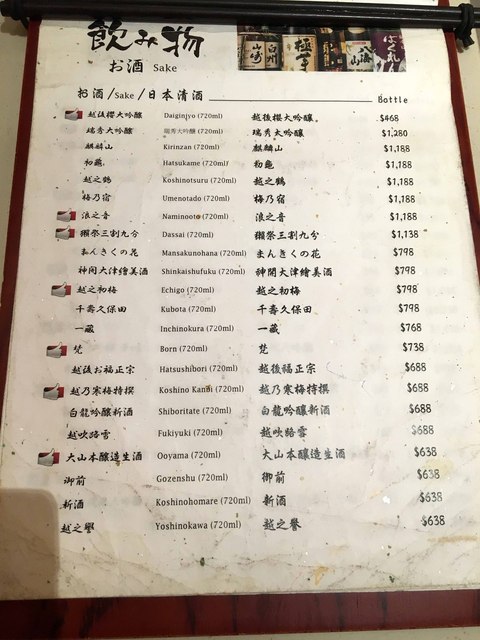 飲み物
お酒 Sake
山崎 白州
お酒/Sake/日本清酒 Bottle
越後櫻大吟釀 Daiginjyo (720ml) 越後櫻大吟釀 $468
瑞秀大吟釀 瑞秀大吟釀 (720ml) 瑞秀大吟釀 $1,280
麒麟山 Kirinzan (720ml) 麒麟山 $1,188
初龜 Hatsukame (720ml) 初龜 $1,188
越之鶴 Koshinotsuru (720ml) 越之鶴 $1,188
梅乃宿 Umenotado (720ml) 梅乃宿 $1,188
浪之音 Naminooto (720ml) 浪之音 $1,188
獺祭三割九分 Dassai (720ml) 獺祭三割九分 $1,138
まんきくの花 Mansakunohana (720ml) まんきくの花 $798
神開大津繪美酒 Shinkaishufuku (720ml) 神開大津繪美酒 $798
越之初梅 Echigo (720ml) 越之初梅 $798
千壽久保田 Kubota (720ml) 千壽久保田 $798
一藏 Inchinokura (720ml) 一藏 $768
梵 Born (720ml) 梵 $738
越後お福正宗 Hatsushibori (720ml) 越後福正宗 $688
越乃寒梅特撰 Koshino Kanbi (720ml) 越乃寒梅特撰 $688
白龍吟釀新酒 Shiboritate (720ml) 白龍吟釀新酒 $688
越吹路雪 Fukiyuki (720ml) 越吹路雪 $688
大山本釀造生酒 Ooyama (720ml) 大山本釀造生酒 $638
御前 Gozenshu (720ml) 御前 $638
新酒 Koshinohomare (720ml) 新酒 $638
越之譽 Yoshinokawa (720ml) 越之譽 $638